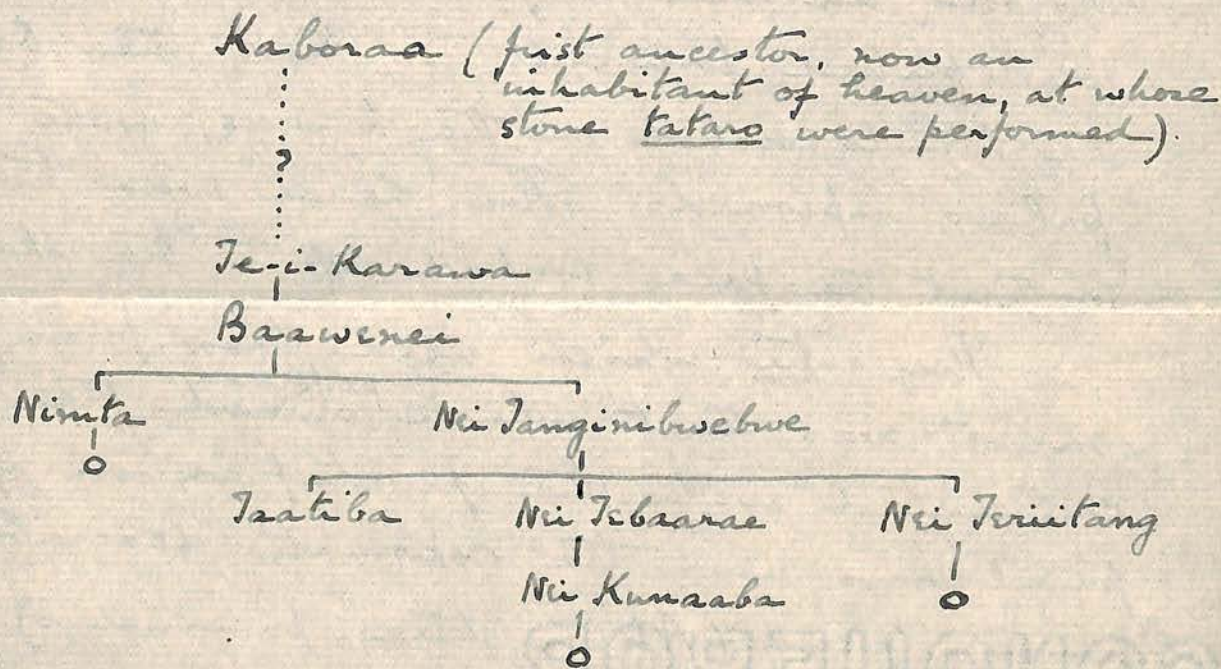 Kaboraa (first ancestor, now an
inhabitant of heaven, at whose
stone tataro were performed).
?
Te-i-Karawa
Baawenei
Ninita Nei Tanginibwebwe
o
Taatiba Nei Tebaarae Nei Teriitang
Nei Kunaaba o
o